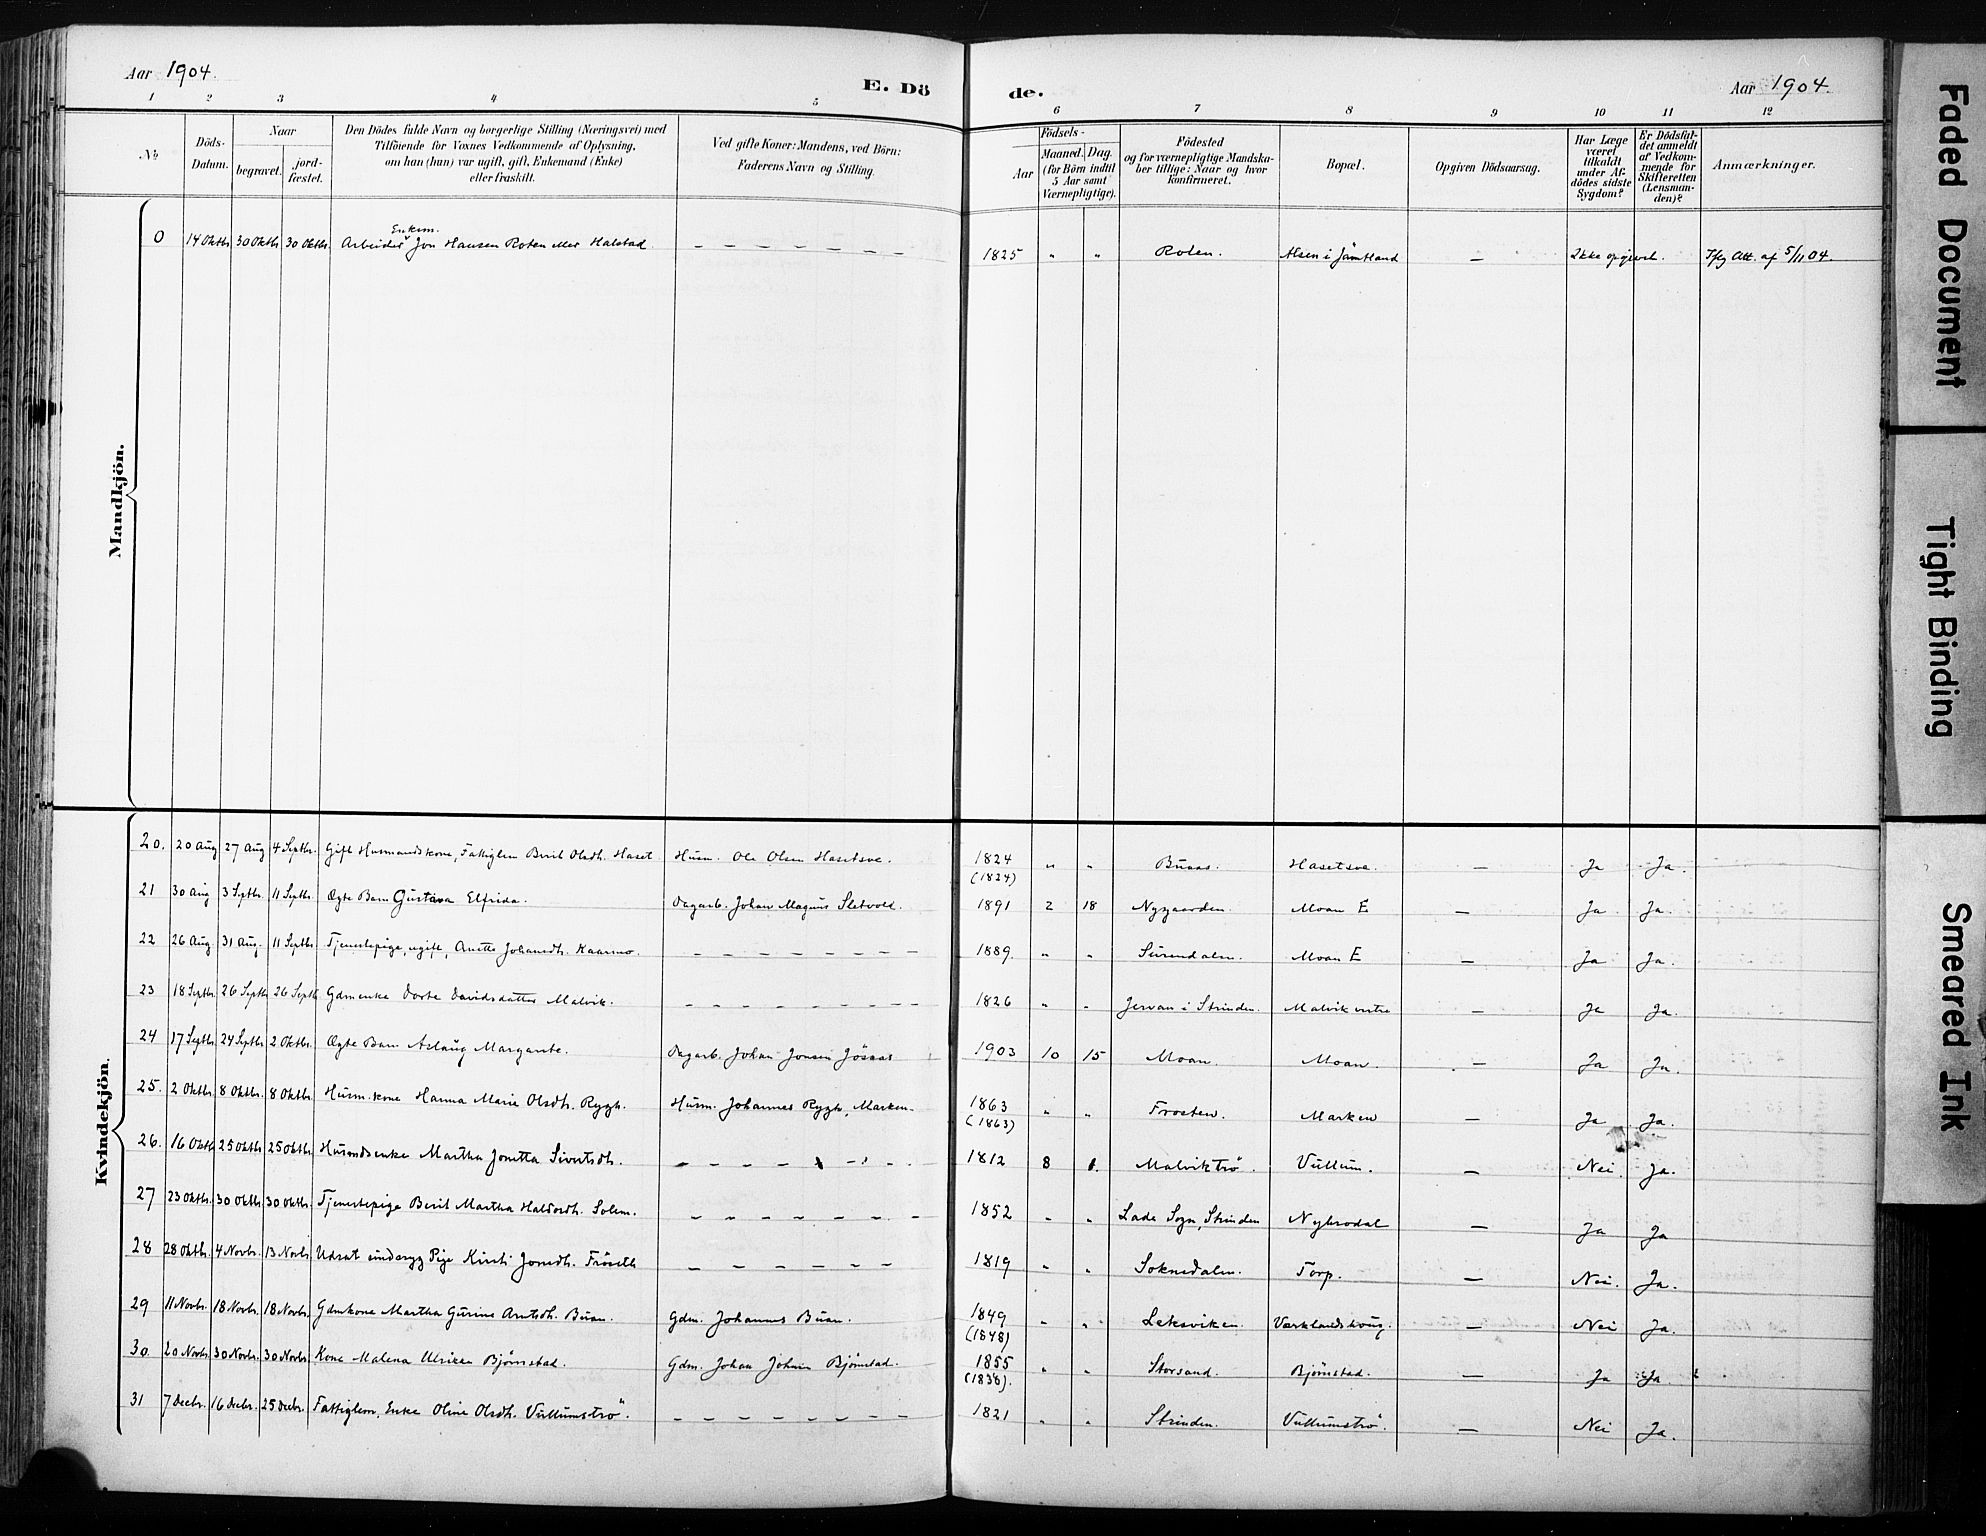 Aar 1904.
E. Dö
de.
Aar 1904.
1 2 3 4 5 6 7 8 9 10 11 12
№
Döds-
Datum.
Naar
begravet.
jord-
fæstet.
Den Dödes fulde Navn og borgerlige Stilling (Næringsvei) med
Tilföiende for Voxnes Vedkommende af Oplysning,
om han (hun) var ugift, gift, Enkemand (Enke)
eller fraskilt.
Ved gifte Koner: Mandens, ved Börn:
Faderens Navn og Stilling.
Födsels-
Aar
Maaned. Dag.
(for Börn indtil
5 Aar samt
Værnepligtige).
Födested
og for værnepligtige Mandska-
ber tillige: Naar og hvor
konfirmeret.
Bopæl.
Opgiven Dödsaarsag.
Har Læge
været
tilkaldt
under Af-
dödes sidste
Sygdom?
Er Dödsfal-
det anmeldt
af Vedkom-
mende for
Skifteretten
(Lensman-
den)?
Anmærkninger.
Mandkjön.
Enkem.
0 14 Oktbr 30 Oktbr 30 Oktbr. Arbeider Jon Hansen Roten eller Halstad — — — — — — — 1825 " " Roten. Alsen i Jämtland — Ikke opgivet. Ifg Att. af 5/11 04.
Kvindekjön.
20. 20 Aug 27 Aug 4 Septbr. Gift Husmandskone, Fattiglem Berit Olsdh. Haset Husm. Ole Olsen Hasetsve. 1824 " " Buaas. Hasetsve. — Ja Ja.
(1824)
21 30 Aug 3 Septbr. 11 Septbr. Ægte Barn Gustava Elfrida. Dagarb. Johan Magnus Sletvold. 1891 2 18 Nygaarden. Moan E — Ja. Ja.
22 26 Aug. 31 Aug. 11 Septbr Tjenestepige, ugift, Anette Johansdh. Kaarmo. — — — — — — — 1889. " " Surendalen. Moan E — Ja Ja.
23 18 Septbr. 26 Septbr 26 Septb Gdmenke Dorte Davidsdatter Malvik. — — — — — — — — 1826 " " Jervan i Strinden. Malvik vestre — Ja Ja.
24 17 Septbr 24 Septbr. 2 Oktbr. Ægte Barn Aslaug Margarete. Dagarb. Johan Jonsen Jösaas 1903 10 15 Moan. Moan. — Ja Ja.
25. 2 Oktbr. 8 Oktbr. 8 Oktbr. Husm.kone Hanna Marie Olsdh. Rygh. Husm. Johannes Rygh, Marken. 1863 " " Frosten. Marken — Ja Ja.
(1863)
26. 16 Oktb 25 Oktbr 25 Oktbr. Husmdsenke Martha Jonetta Sivertsdh. — — — — — — 1812 8 1. Malviktrö. Vullum. — Nei. Ja.
27 23 Oktbr. 30 Oktbr. 30 Oktbr. Tjenestepige Berit Martha Haldordh. Solem. — — — — — — — 1852 " " Lade Sogn, Strinden Nybrodal — Ja Ja
28 28 Oktbr. 4 Novbr. 13 Novbr Pige Kirsti Jonsdh. Fröseth — — — — — — 1819 " " Soknedalen. Torp. — Nei. Ja.
29 11 Novbr. 18 Novbr. 18 Novbr. Gdmkone Martha Gurine Arntsdh. Buan. Gdm. Johannes Buan. 1849 " " Leksviken. — Nei Ja.
(1848)
30. 20 Novbr. 30 Novbr. 30 Novbr. Kone Malena Ulrikka Bjørnstad. Gdm. Johan Johnsen Bjørnstad. 1855 " " Storsand. Bjørnstad. — Ja Ja.
(1838).
31 7 Decbr. 16 Decbr. 25 Decbr. Fattiglem, Enke Oline Olsdh. Vullumströ. — — — — — — — 1821 " " Strinden. Vullumströ. — Nei Ja.
Faded Document
Tight Binding
Smeared Ink